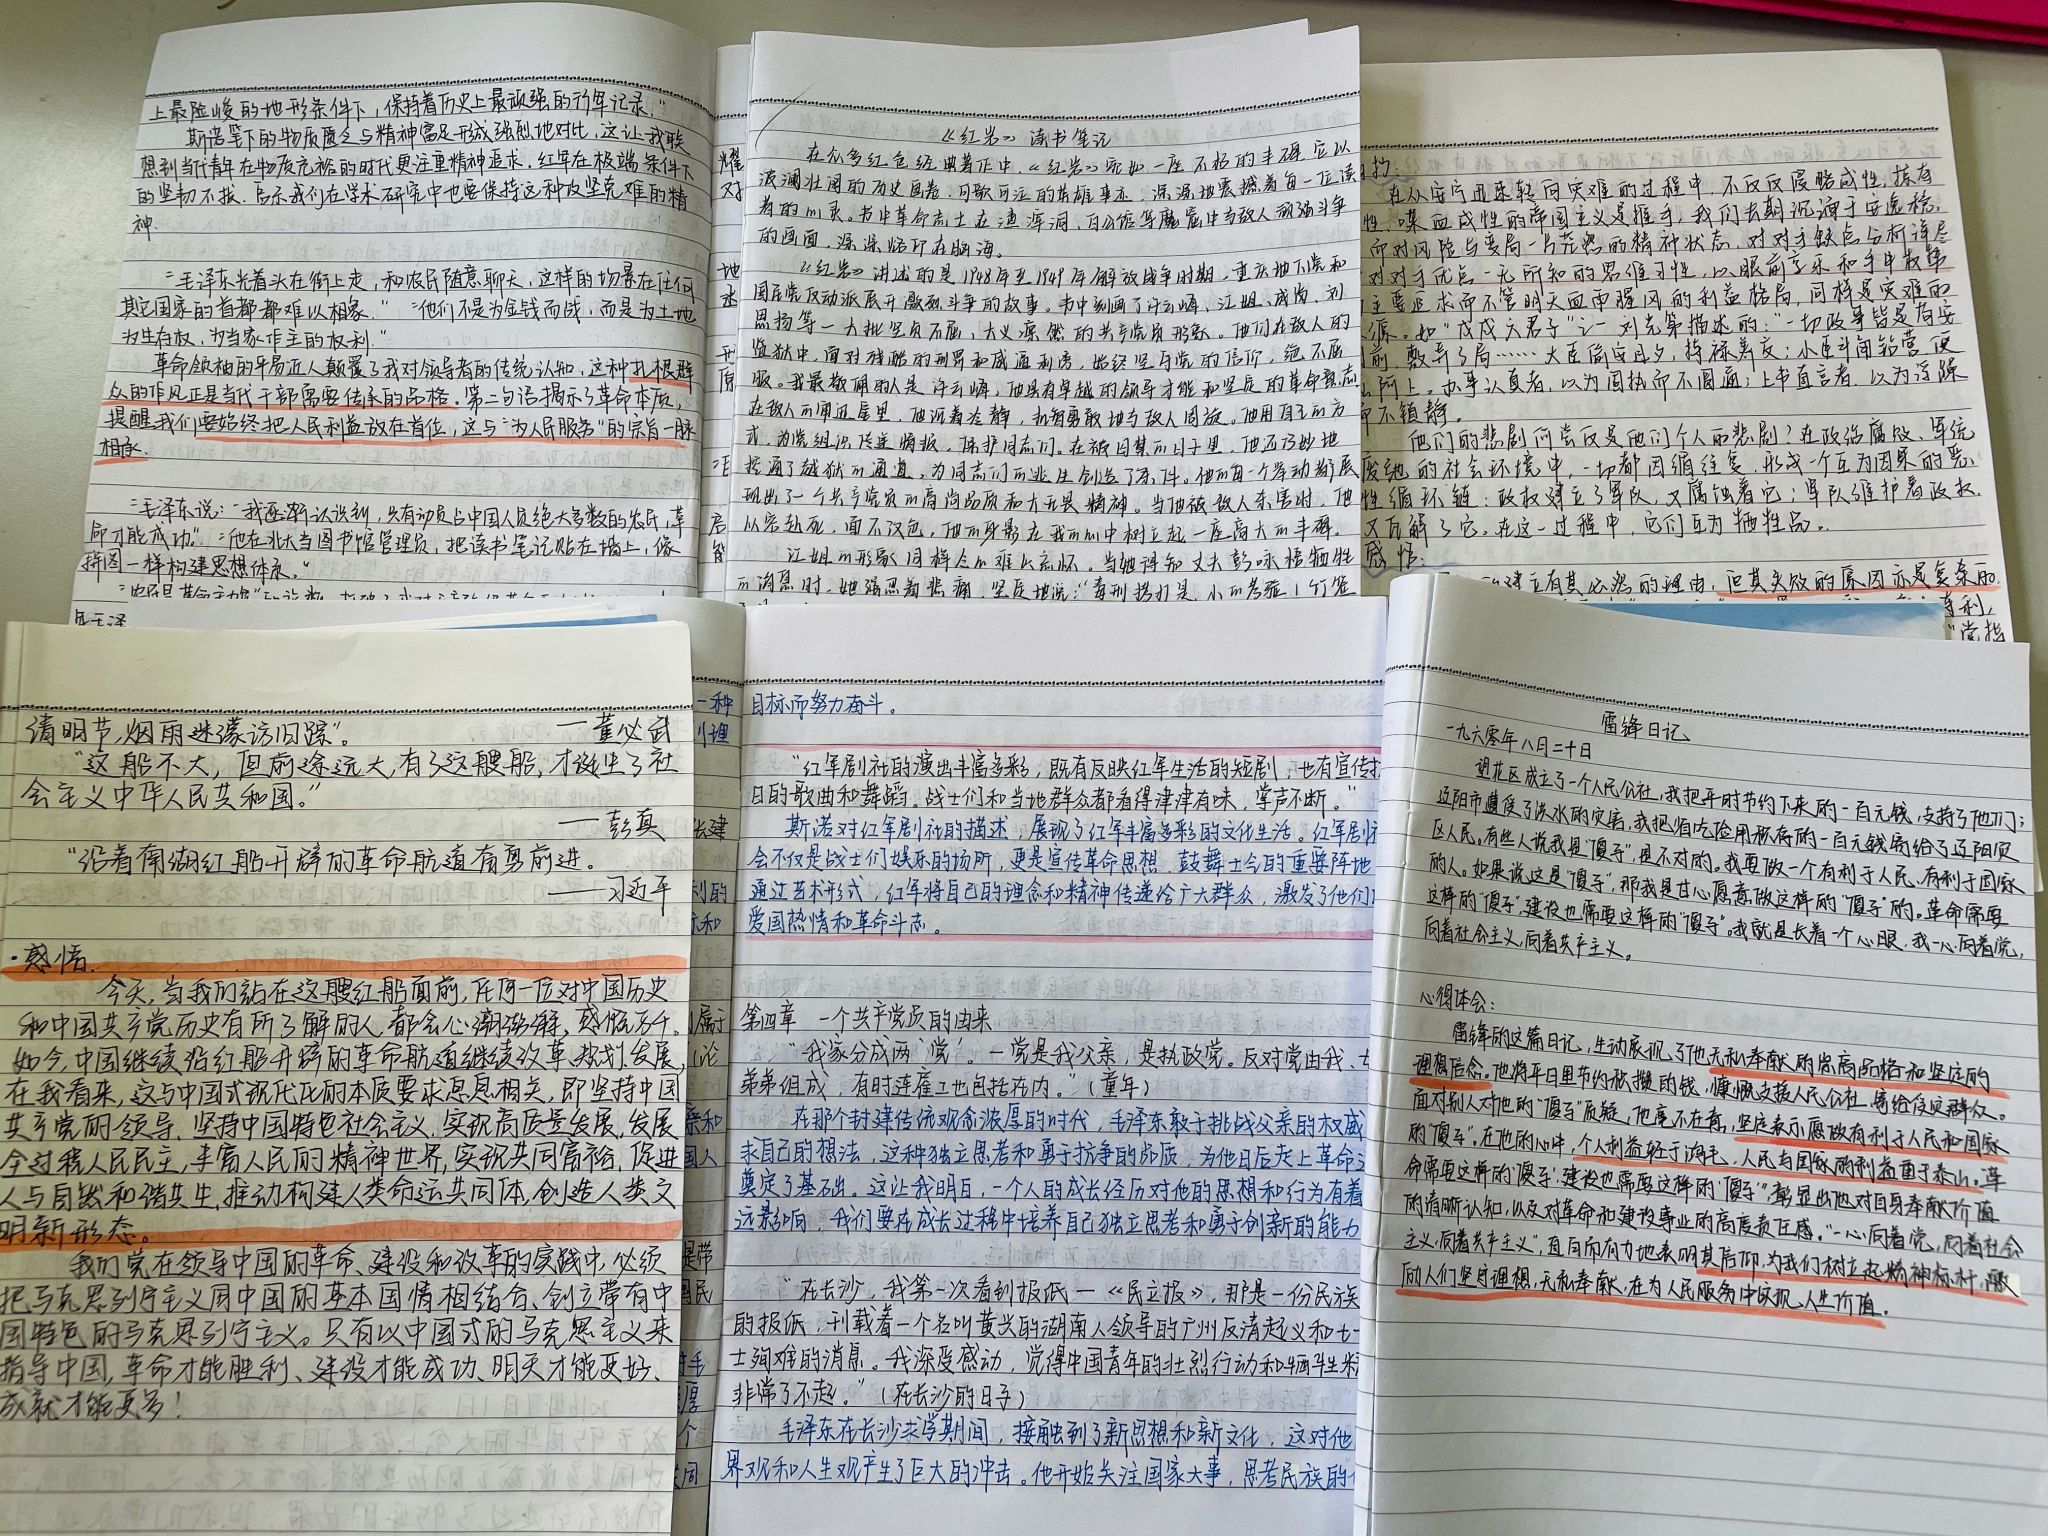 上最险峻的地形条件下，保持着历史上最顽强的行军记录."
斯诺笔下的物质匮乏与精神富足形成强烈地对比，这让我联
想到当代青年在物质充裕的时代更注重精神追求.红军在极端条件下
的坚韧不拔，启示我们在学术研究中也要保持这种攻坚克难的精
神.
"毛泽东光着头在街上走，和农民随意聊天，这样的场景在任何
其它国家的首都都难以想象." "他们不是为金钱而战，而是为土地
为生存权，为当家作主的权利."
革命领袖的平易近人颠覆了我对领导者的传统认知，这种扎根群
众的作风正是当代干部需要传承的品格.第二句话揭示了革命本质，
提醒我们要始终把人民利益放在首位，这与"为人民服务"的宗旨一脉
相承.
"毛泽东说："我逐渐认识到，只有动员占中国人民绝大多数的农民，革
命才能成功". "他在北大当图书馆管理员，把读书笔记贴在墙上，像
拼图一样构建思想体系."
《红岩》读书笔记
在众多红色经典著作中，《红岩》宛如一座不朽的丰碑，它以
波澜壮阔的历史画卷、可歌可泣的英雄事迹，深深地震撼着每一位读
者的心灵。书中革命志士在渣滓洞、白公馆等魔窟中与敌人顽强斗争
的画面，深深烙印在脑海。
《红岩》讲述的是1948年至1949年解放战争时期，重庆地下党和
国民党反动派展开激烈斗争的故事。书中刻画了许云峰、江姐、成岗、刘
思扬等一大批坚贞不屈、大义凛然的共产党员形象。他们在敌人的
监狱中，面对残酷的刑罚和威逼利诱，始终坚守党的信仰，绝不屈
服。我最敬佩的人是许云峰，他具有卓越的领导才能和坚定的革命意志
在敌人的审讯屋里，他沉着冷静，机智勇敢地与敌人周旋。他用自己的方
式，为党组织传递情报，保护同志们。在被囚禁的日子里，他还巧妙地
挖通了越狱的通道，为同志们的逃生创造了条件。他的每一个举动都展
现出了一个共产党员的高尚品质和大无畏精神。当他被敌人杀害时，他
从容赴死，面不改色，他的身影在我的心中树立起一座高大的丰碑。
江姐的形象同样令人难以忘怀。当她得知丈夫彭咏梧牺牲
的消息时，她强忍着悲痛，坚定地说："毒刑拷打是小的考验！竹签
在从安宁迅速转向灾难的过程中，不仅仅侵略成性，掠夺
性，喋血成性的帝国主义是推手，我们去朝沉湎于安逸稳，
而对风险与变局一片茫然的精神状态，对对手缺点分析详尽
对对手优点一无所知的思维习性，以眼前享乐和手中散帑
主要追求而不管明天血雨腥风的利益格局，同样是灾难的
源。如"戊戌六君子"之一刘光第描述的："一切政事皆是苟安
前，敷衍了局……大臣偷安旦夕，持禄养交；小臣斗闹钻营，便
阿上。办事认真者，以为固执而不圆通；上书直言者，以为浮躁
而不镇静。
他们的悲剧何尝仅是他们个人的悲剧？在政治腐败、军统
废弛的社会环境中，一切都因循往复，形成一个互为因果的恶
性循环链：政权建立了军队，又腐蚀着它；军队维护着政权，
又瓦解了它。在这一过程中，它们互为牺牲品。
感悟：
建立有其必然的理由，但其失败的原因亦是复杂的
清明节，烟雨迷濛访旧踪"。
—董必武
"这船不大，但前途远大，有了这艘船，才诞生了社
会主义中华人民共和国。"
—彭真
"沿着南湖红船开辟的革命航道奋勇前进。
——习近平
·感悟.
今天，当我们站在这艘红船面前，任何一位对中国历史
和中国共产党历史有所了解的人，都会心潮澎湃，感慨万千。
如今，中国继续沿红船开辟的革命航道继续改革、规划、发展，
在我看来，这与中国式现代化的本质要求息息相关，即坚持中国
共产党的领导、坚持中国特色社会主义、实现高质量发展，发展
全过程人民民主，丰富人民的精神世界，实现共同富裕，促进
人与自然和谐共生，推动构建人类命运共同体，创造人类文
明新形态。
我们党在领导中国的革命、建设和改革的实践中，必须
把马克思列宁主义同中国的基本国情相结合、创立带有中
国特色的马克思列宁主义。只有以中国式的马克思主义来
指导中国，革命才能胜利、建设才能成功、明天才能更好、
成就才能更多！
目标而努力奋斗。
"红军剧社的演出丰富多彩，既有反映红军生活的短剧，也有宣传抗
日的歌曲和舞蹈。战士们和当地群众都看得津津有味，掌声不断。"
斯诺对红军剧社的描述，展现了红军丰富多彩的文化生活。红军剧社
会不仅是战士们娱乐的场所，更是宣传革命思想、鼓舞士气的重要阵地
通过艺术形式，红军将自己的理念和精神传递给广大群众，激发了他们的
爱国热情和革命斗志。
第四章 一个共产党员的由来
"我家分成两'党'。一党是我父亲，是执政党。反对党由我、
弟弟组成，有时连雇工也包括在内。"（童年）
在那个封建传统观念浓厚的时代，毛泽东敢于挑战父亲的权威
求自己的想法，这种独立思考和勇于抗争的品质，为他日后走上革命
奠定了基础。这让我明白，一个人的成长经历对他的思想和行为有着
远影响，我们要在成长过程中培养自己独立思考和勇于创新的能力
"在长沙，我第一次看到报纸——《民立报》，那是一份民族
的报纸，刊载着一个名叫黄兴的湖南人领导的广州反清起义和七十
士殉难的消息。我深受感动，觉得中国青年的壮烈行动和牺牲精
非常了不起。"（在长沙的日子）
毛泽东在长沙求学期间，接触到了新思想和新文化，这对他
界观和人生观产生了巨大的冲击。他开始关注国家大事，思考民族的
雷锋日记
一九六零年八月二十日
望花区成立了一个人民公社，我把平时节约下来的一百元钱，支持了他们；
辽阳市遭受了洪水的灾害，我把省吃俭用积存的一百元钱寄给了辽阳灾
区人民。有些人说我是"傻子"，是不对的。我要做一个有利于人民、有利于国家
的人。如果说这是"傻子"，那我是甘心愿意做这样的"傻子"的。革命需要
这样的"傻子"，建设也需要这样的"傻子"。我就是长着一个心眼，我一心向着党，
向着社会主义，向着共产主义。
心得体会：
雷锋的这篇日记，生动展现了他无私奉献的崇高品格和坚定的
理想信念。他将平日里节约积攒的钱，慷慨支援人民公社，寄给受灾群众。
面对别人对他的"傻子"质疑，他毫不在意，坚定表示愿做有利于人民和国家
的"傻子"。在他的心中，个人利益轻于鸿毛，人民与国家的利益重于泰山。革
命需要这样的"傻子"，建设也需要这样的"傻子"，彰显出他对自身奉献价值
的清晰认知，以及对革命和建设事业的高度责任感。"一心向着党，向着社会
主义，向着共产主义"，直白而有力地表明其信仰，为我们树立起精神标杆，激
励人们坚守理想，无私奉献，在为人民服务中实现人生价值。